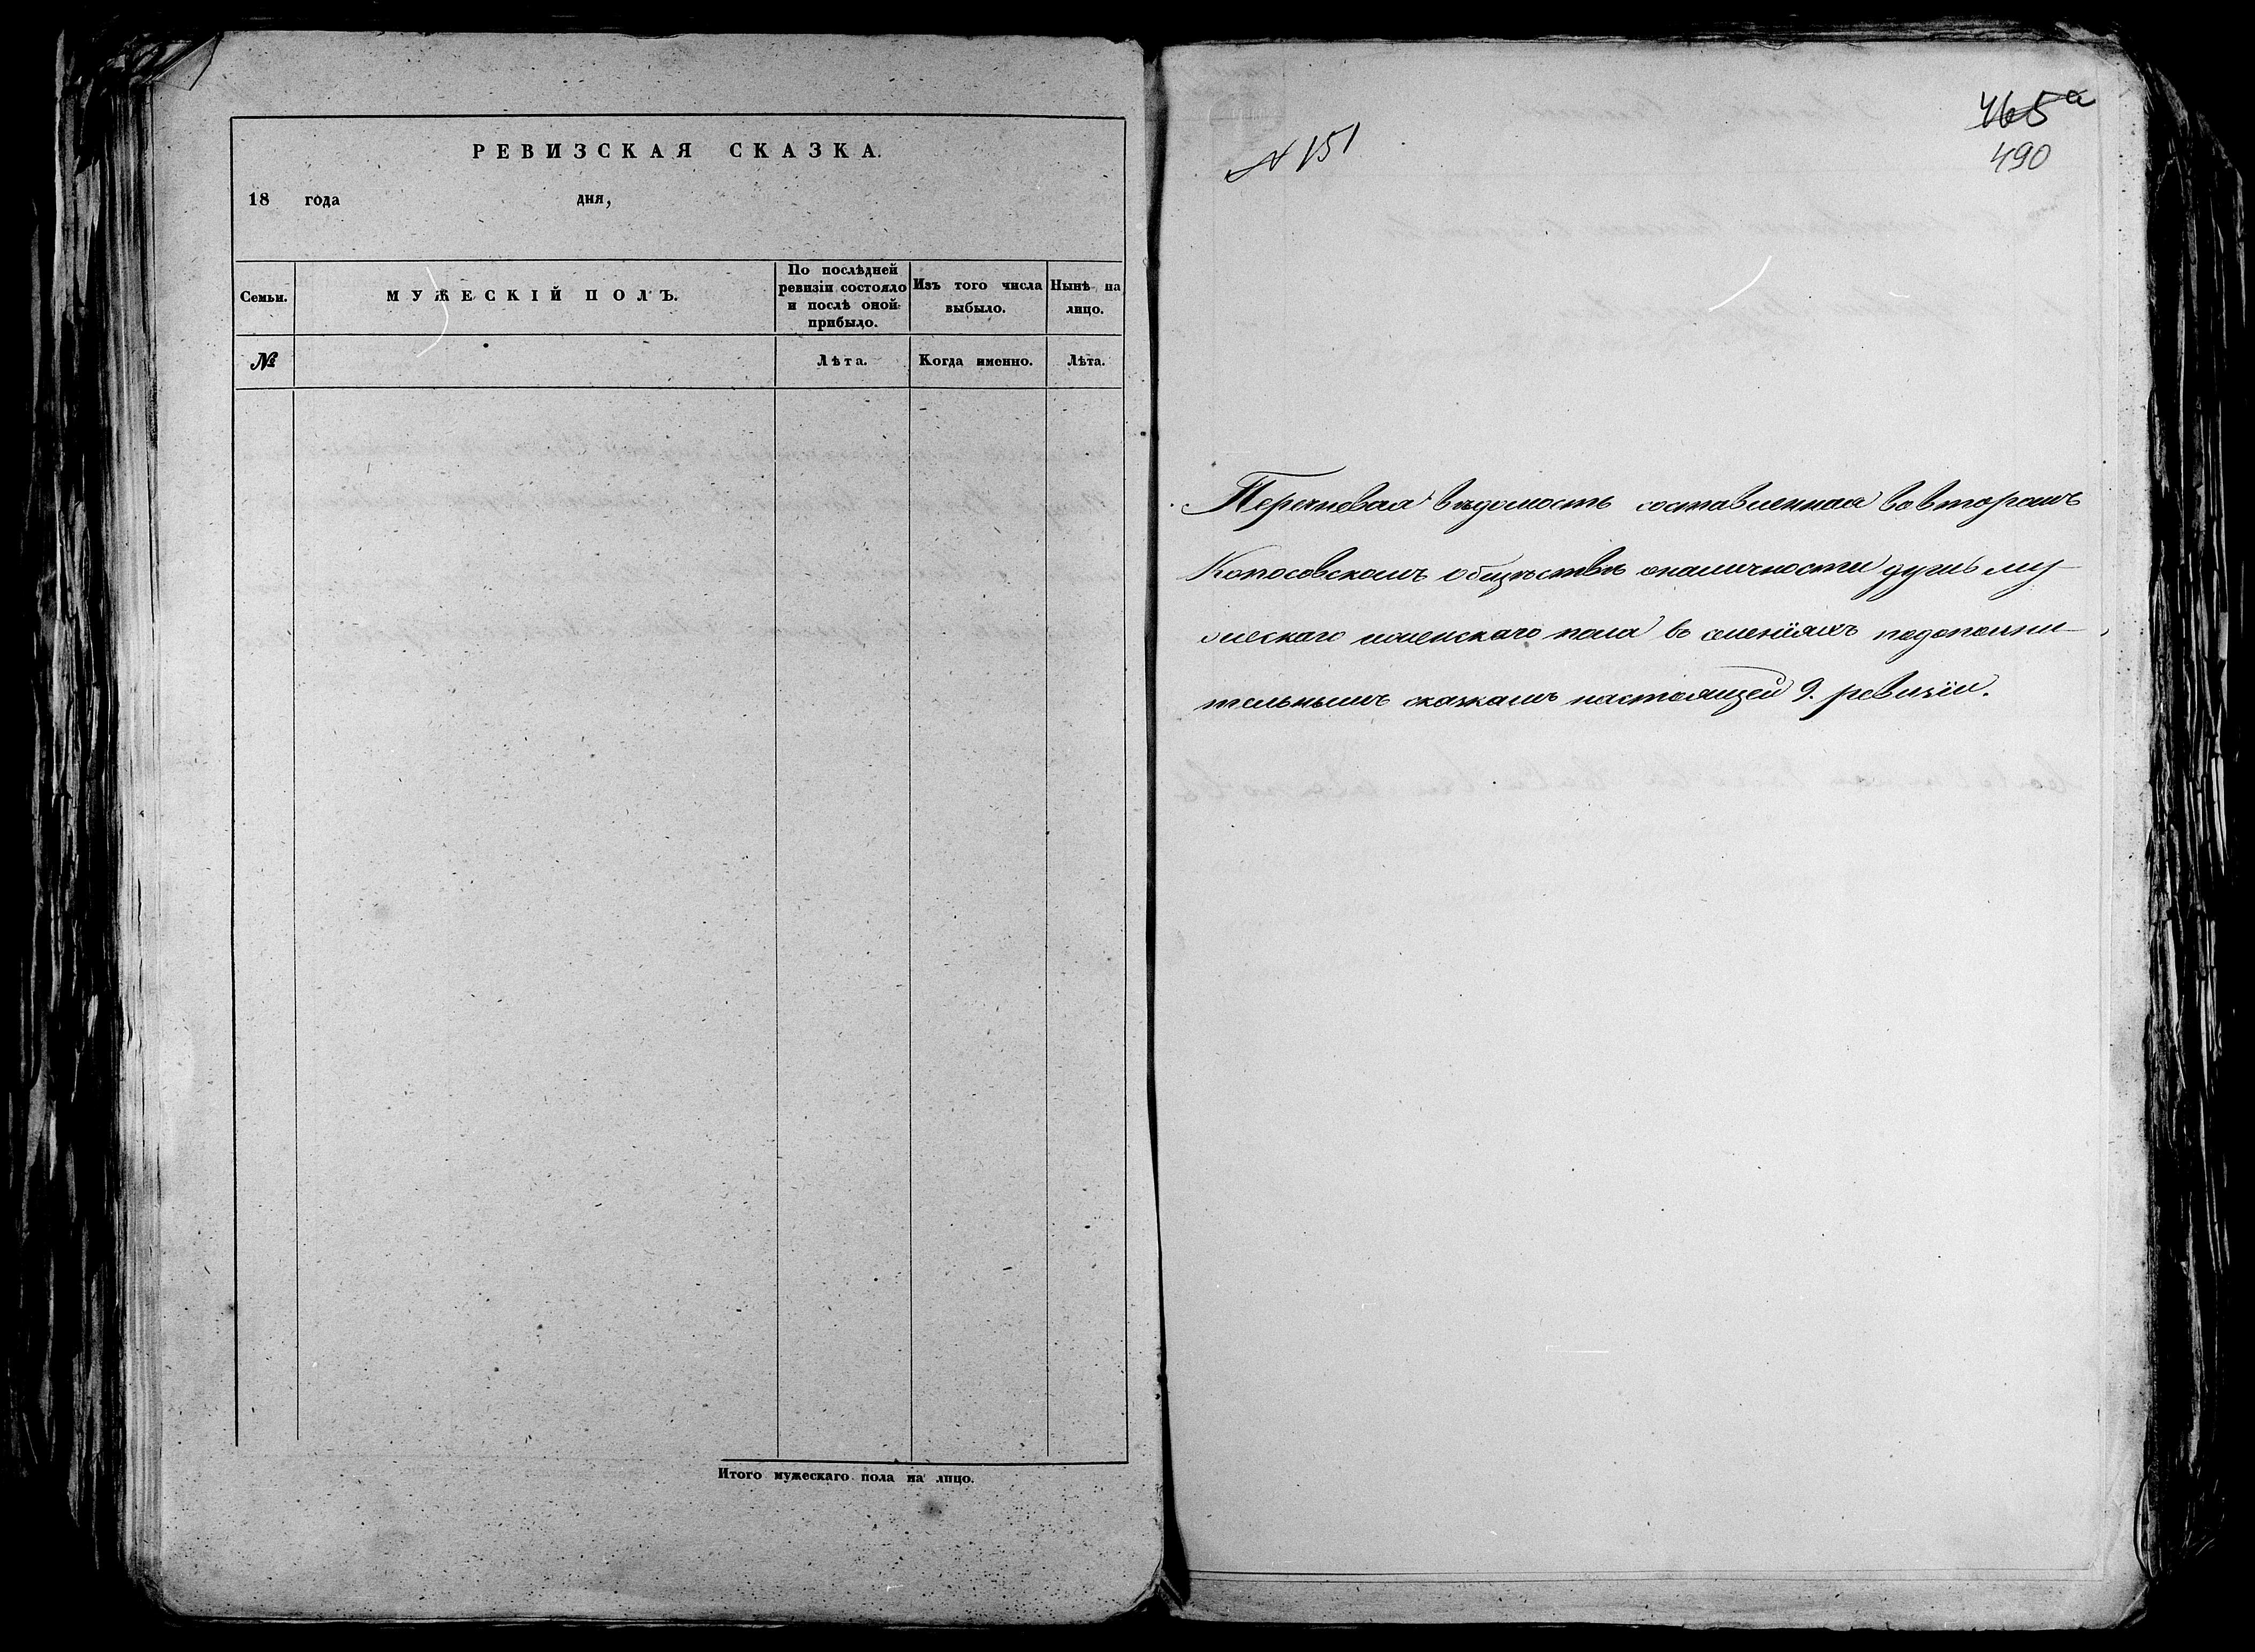 РЕВИЗСКАЯ СКАЗКА.
18 года дня,
Семьи.
МУЖЕСКІЙ ПОЛЪ.
По послѣдней
ревизіи состояло
и послѣ оной
прибыло.
Изъ того числа
выбыло.
Нынѣ на
лицо.
№
Лѣта.
Когда именно.
Лѣта.
Итого мужескаго пола на лицо.
№ 151
465а
490
Перечневая вѣдомость составленная вовторомъ
Копосовскомъ обществѣ оналичности душь му
жескаго иженскаго пола во селенiяхъ подополни
тельнымъ сказкамъ настоящей 9. ревизiи.